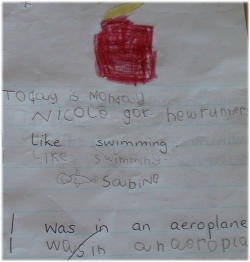 Today is Monday
NICOLE got new runner
Like swimming
Like swimming
Sabine
I was in an aeroplane
I was in an aeropla